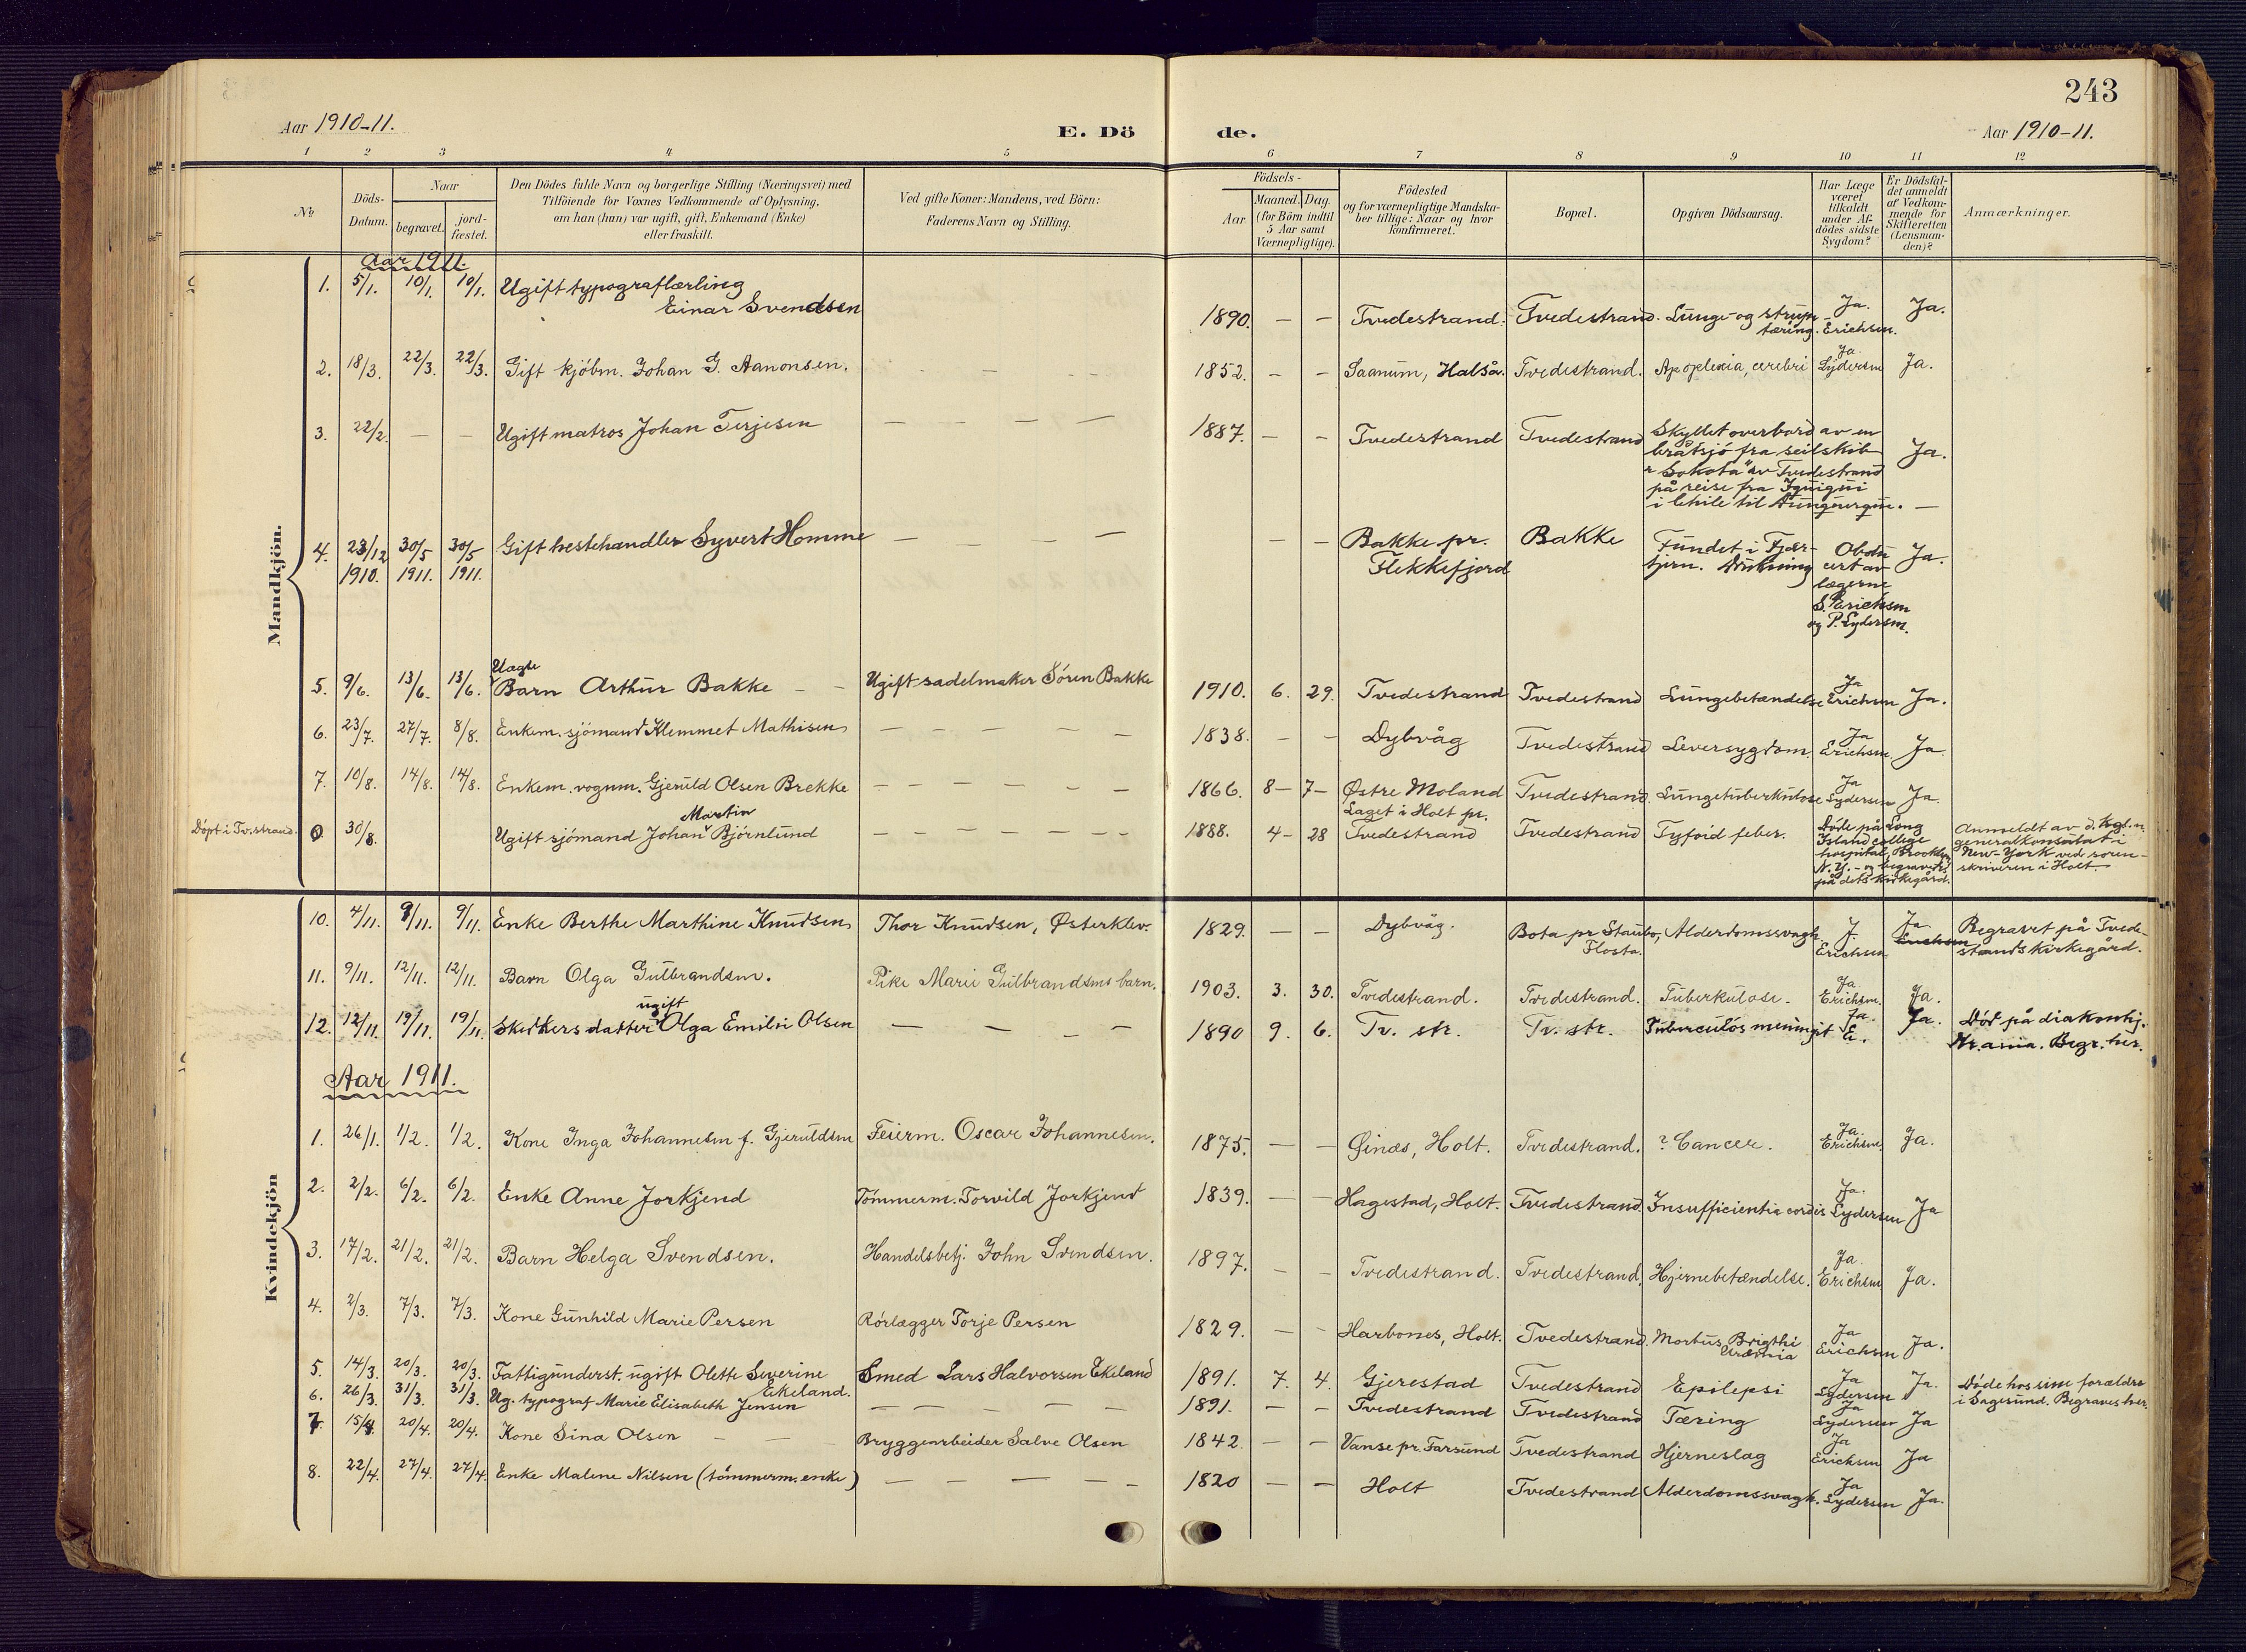 243
Aar 1910-11.
E. Dö
de.
Aar 1910-11.
1 2 3 4 5 6 7 8 9 10 11 12
No
Döds-
Datum.
Naar
begravet.
jord-
fæstet.
Den Dödes fulde Navn og borgerlige Stilling (Næringsvei) med
Tilföiende for Voxnes Vedkommende af Oplysning,
om han (hun) var ugift, gift, Enkemand (Enke)
eller fraskilt.
Ved gifte Koner: Mandens, ved Börn:
Faderens Navn og Stilling.
Födsels-
Aar
Maaned. Dag.
(for Börn indtil
5 Aar samt
Værnepligtige).
Födested
og for værnepligtige Mandska-
ber tillige: Naar og hvor
konfirmeret.
Bopæl.
Opgiven Dödsaarsag.
Har Læge
været
tilkaldt
under Af-
dödes sidste
Sygdom?
Er Dödsfal-
det anmeldt
af Vedkom-
mende for
Skifteretten
(Lensman-
den)?
Anmærkninger.
Mandkjön.
Aar 1911.
1. 5/1. 10/1. 10/1. Ugift typograflærling
Einar Svendsen
1890. — — Tvedestrand. Tvedestrand. Lunge- og strup-
tæring. Ja. Erichsen. Ja.
2. 18/3. 22/3. 22/3. Gift kjöbm. Johan G. Aanonsen. 1852. — — Saanum, Halså. Tvedestrand. Apoplexia, cerebri Ja Lydersen Ja.
3. 22/2. — — Ugift matros Johan Terjesen — — — — 1887. — — Tvedestrand Tvedestrand Skyllet overbord av en
bråtsjö fra seilskib
"Sokota" av Tvedestrand
på reise fra Iquiqui
i Chile til Ja. —
4. 23/12 1910. 30/5 1911. 30/5 1911. Gift hestehandler Syvert Homme — — — — — — Bakke pr.
Flekkefjord Bakke Fundet i Fjær-
tjern. Drukning Obdu
cert av
lægerne
S. Erichsen
og P. Lydersen. Ja.
5. 9/6. 13/6. 13/6. Uægte
Barn Arthur Bakke — — Ugift sadelmaker Sören Bakke 1910. 6. 29. Tvedestrand Tvedestrand Lungebetændelse Ja Erichsen Ja.
6. 23/7. 27/7. 8/8. Enkem. sjömand Klemmet Mathisen — — — — — 1838. — — Dybvåg Tvedestrand Leversygdom. Ja Erichsen Ja
7. 10/8. 14/8. 14/8. Enkem. vognm. Gjeruld Olsen Brekke — — — — — 1866. 8— 7— Østre Moland Tvedestrand. Lungetuberkulose Ja Lydersen Ja.
Döpt i Tv.strand. 30/8. Ugift sjömand Johan Martin Björnlund — — — — — — 1888. 4— 28 Laget i Holt pr.
Tvedestrand Tvedestrand Tyfoid feber. Döde på Long
Island college
hospital, Brooklyn
N.Y. - og begravet
på dets kirkegård. Anmeldt av d. kgl. n.
generalkonsulat i
New-York ved soren-
skriveren i Holt.
Kvindekjön
10. 4/11. 9/11. 9/11. Enke Berthe Marthine Knudsen Thor Knudsen, Østerklev. 1829. — — Dybvåg. Bota pr Staubo,
Flosta. Alderdomssvagh. J.
Erichsen Ja Erichsen Begravet på Tvede-
strands kirkegård.
11. 9/11. 12/11. 12/11. Barn Olga Gulbrandsen. Pike Marie Gulbrandsens barn. 1903. 3. 30. Tvedestrand. Tvedestrand. Tuberkulose. Ja Erichsen. Ja.
12. 12/11. 19/11. 19/11. datter ugift Olga Emilie Olsen — — — — 1890 9. 6. Tv. str. Tv. str. Tuberculös meningit Ja. E. Ja. Död på diakonhj.
Kr.ania. Begr. her.
Aar 1911.
1. 26/1. 1/2. 1/2. Kone Inga Johannesen f. Gjeruldsen Feierm. Oscar Johannesen. 1875. — — Ginæs, Holt. Tvedestrand. ? Cancer. Ja. Erichsen. Ja.
2. 2/2. 6/2. 6/2. Enke Anne Jorkjend Tömmerm. Torvild Jorkjend 1839. — — Hagestad, Holt. Tvedestrand. Insufficientia cordis Ja. Lydersen Ja
3. 17/2. 21/2. 21/2. Barn Helga Svendsen. Handelsbetj. John Svendsen. 1897. — — Tvedestrand. Tvedestrand. Hjernebetændelse. Ja. Erichsen Ja.
4. 2/3. 7/3. 7/3. Kone Gunhild Marie Persen Rörlægger Torje Persen 1829. — — Harbones, Holt. Tvedestrand. Morbus Brigthi
Uræmia Ja Erichsen Ja.
5. 14/3. 20/3. 20/3. Fattigunderst. ugift Olette Severine
Ekeland. Smed Lars Halvorsen Ekeland 1891. 7. 4. Gjerestad Tvedestrand Epilepsi Ja Lydersen Ja. Döde hos sine forældre
i Sagesund. Begraves her.
6. 26/3. 31/3. 31/3. Ug. typograf Marie Elisabeth Jensen — — — — — 1891. — — Tvedestrand Tvedestrand Tæring Ja Lydersen Ja
7. 15/4. 20/4. 20/4. Kone Sina Olsen — — — Bryggearbeider Salve Olsen 1842. — — Vanse pr. Farsund Tvedestrand Hjerneslag Ja Erichsen Ja
8. 22/4. 27/4. 27/4. Enke Malene Nilsen (tömmerm. enke) — — — — — 1820 — — Holt Tvedestrand Alderdomssvagh. Ja Lydersen Ja.